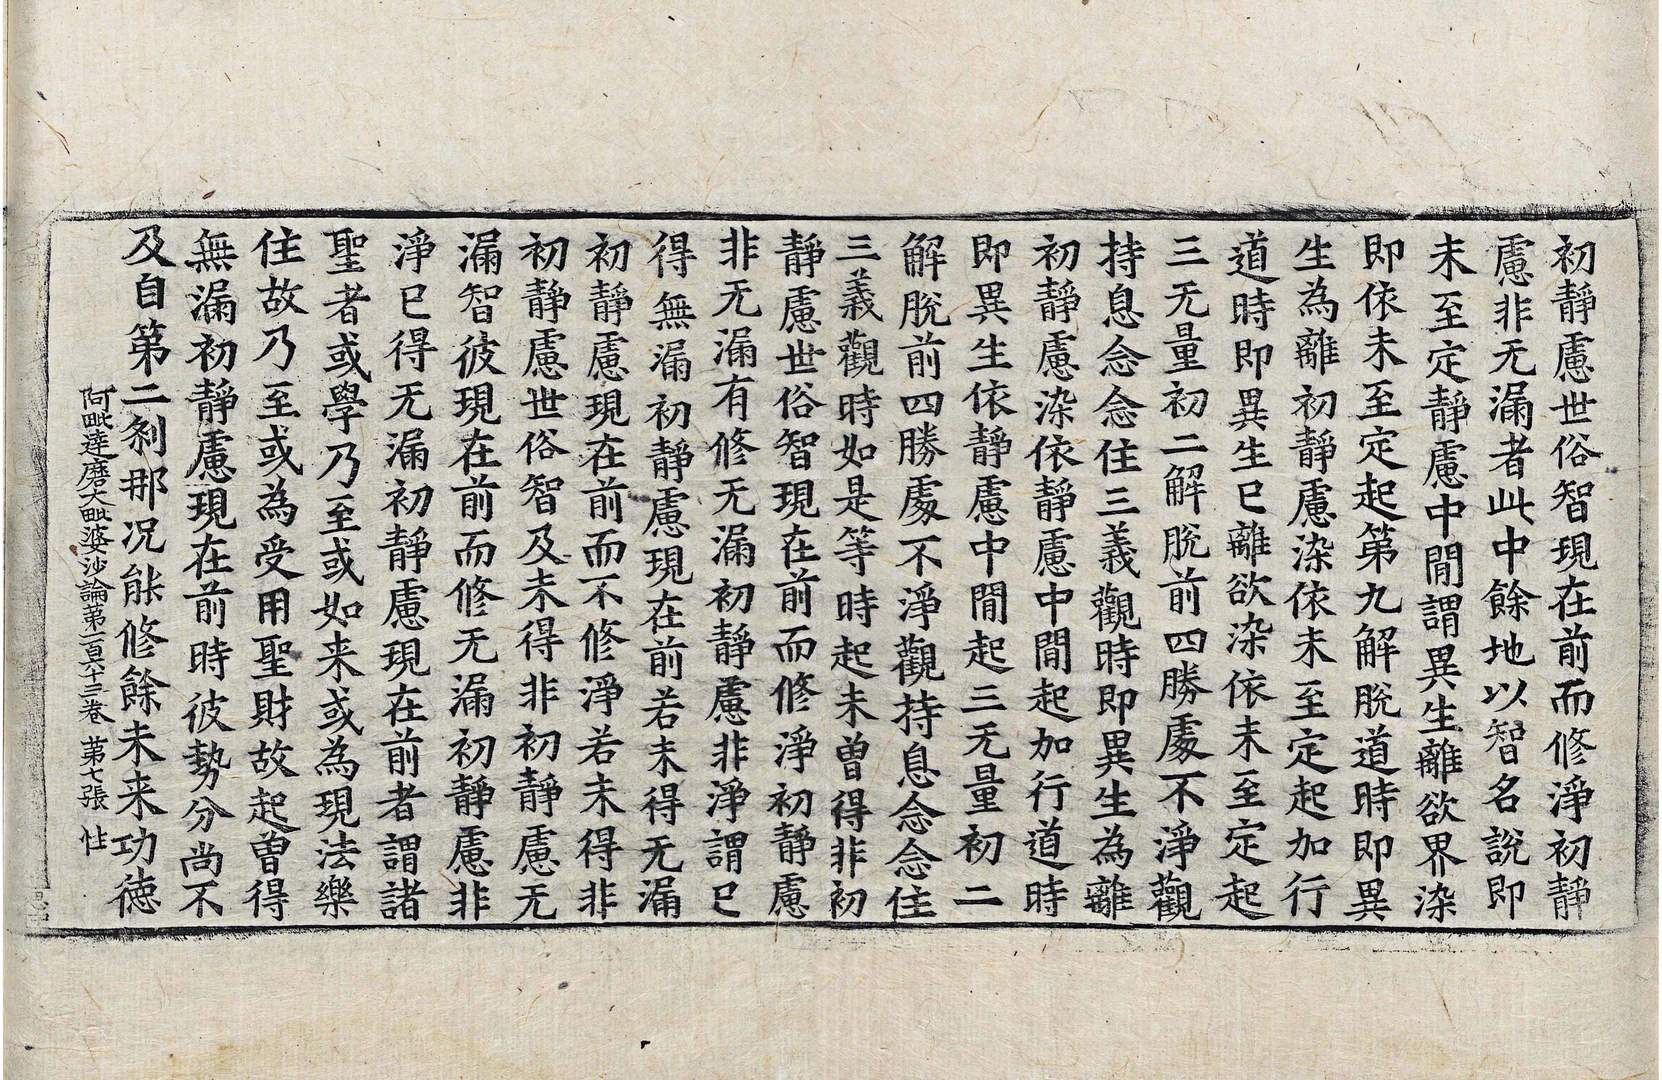 初靜慮世俗智現在前而修淨初靜
慮非无漏者此中餘地以智名說即
未至定靜慮中間謂異生離欲界染
即依未至定起第九解脫道時即異
生為離初靜慮染依未至定起加行
道時即異生已離欲染依未至定起
三无量初二解脫前四勝處不淨觀
持息念念住三義觀時即異生為離
初靜慮染依靜慮中間起加行道時
即異生依靜慮中間起三无量初二
解脫前四勝處不淨觀持息念念住
三義觀時如是等時起未曾得非初
靜慮世俗智現在前而修淨初靜慮
非无漏有修无漏初靜慮非淨謂已
得無漏初靜慮現在前若未得无漏
初靜慮現在前而不修淨若未得非
初靜慮世俗智及未得非初靜慮无
漏智彼現在前而修无漏初靜慮非
淨已得无漏初靜慮現在前者謂諸
聖者或學乃至或如来或為現法樂
住故乃至或為受用聖財故起曾得
無漏初靜慮現在前時彼勢分尚不
及自第二剎那况能修餘未来功德
阿毗達磨大毗婆沙論第一百六十三卷 第七張 性